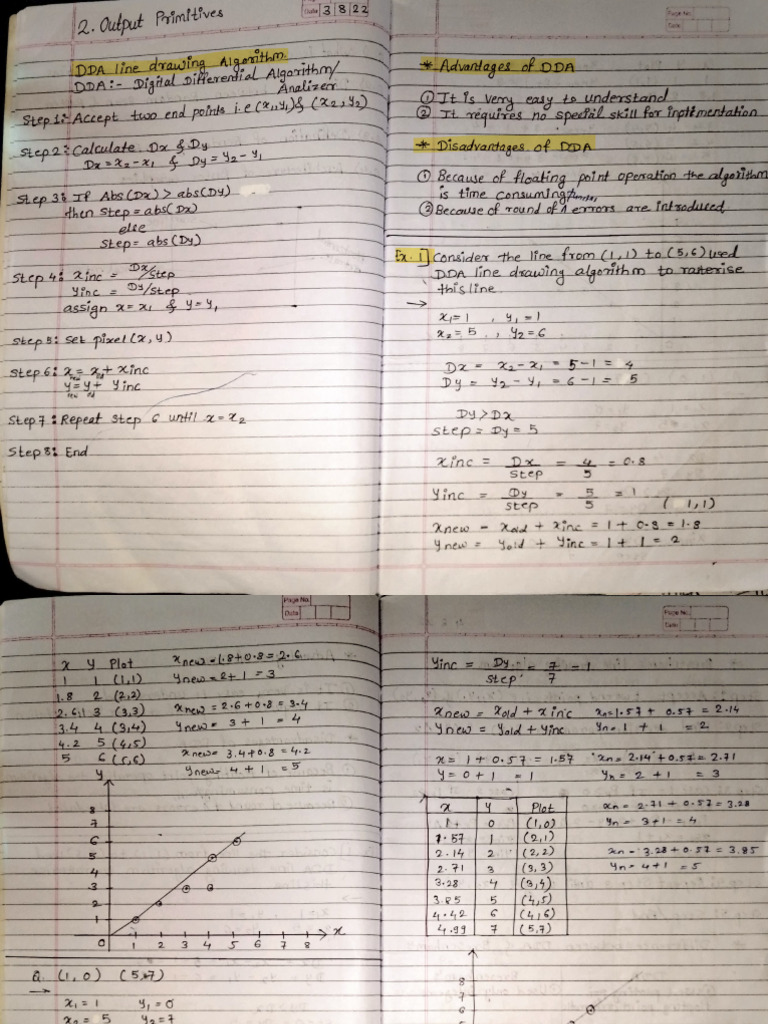 Date 3 8 22
2. Output Primitives
DDA line drawing Algorithm.
DDA:- Digital Differential Algorithm/
Analizer
Step 1: Accept two end points i.e (x1,y1) & (x2,y2)
Step 2: Calculate Dx & Dy
Dx = x2 - x1 & Dy = y2 - y1
Step 3: If Abs(Dx) > abs(Dy)
then Step = abs(Dx)
else
Step = abs(Dy)
Step 4: xinc = Dx/step
yinc = Dy/step
assign x = x1 & y = y1
Step 5: Set pixel (x, y)
Step 6: x = x + xinc
new old
y = y + yinc
new old
Step 7: Repeat step 6 until x = x2
Step 8: End
Page No.
Date
* Advantages of DDA
① It is very easy to understand
② It requires no special skill for implimentation
* Disadvantages of DDA
① Because of floating point operation the algorithm
is time consuming
② Because of round of errors are introduced
Ex. 1] Consider the line from (1,1) to (5,6) used
DDA line drawing algorithm to rasterise
this line.
→
x1 = 1 , y1 = 1
x2 = 5 , y2 = 6
Dx = x2 - x1 = 5 - 1 = 4
Dy = y2 - y1 = 6 - 1 = 5
Dy > Dx
step = Dy = 5
xinc = Dx/step = 4/5 = 0.8
yinc = Dy/step = 5/5 = 1
( 1,1)
xnew = xold + xinc = 1 + 0.8 = 1.8
ynew = yold + yinc = 1 + 1 = 2
Page No.
Date
x y Plot xnew = 1.8+0.8 = 2.6
1 1 (1,1) ynew = 2+1 = 3
1.8 2 (2,2)
2.6 3 (3,3) xnew = 2.6 + 0.8 = 3.4
3.4 4 (3,4) ynew = 3 + 1 = 4
4.2 5 (4,5)
5 6 (5,6) xnew = 3.4+0.8 = 4.2
ynew = 4 + 1 = 5
Y
8
7
6
5
4
3
2
1
0 1 2 3 4 5 6 7 8 x
Q. (1,0) (5,7)
→
x1 = 1 y1 = 0
x2 = 5 y2 = 7
Page No.
Date
yinc = Dy/step = 7/7 = 1
xnew = xold + xinc xn = 1.57 + 0.57 = 2.14
ynew = yold + yinc yn = 1 + 1 = 2
x = 1 + 0.57 = 1.57 xn = 2.14 + 0.57 = 2.71
y = 0 + 1 = 1 yn = 2 + 1 = 3
x y Plot xn = 2.71 + 0.57 = 3.28
1 0 (1,0) yn = 3 + 1 = 4
1.57 1 (2,1)
2.14 2 (2,2) xn = 3.28 + 0.57 = 3.85
2.71 3 (3,3) yn = 4 + 1 = 5
3.28 4 (3,4)
3.85 5 (4,5)
4.42 6 (4,6)
4.99 7 (5,7)
8
7
6